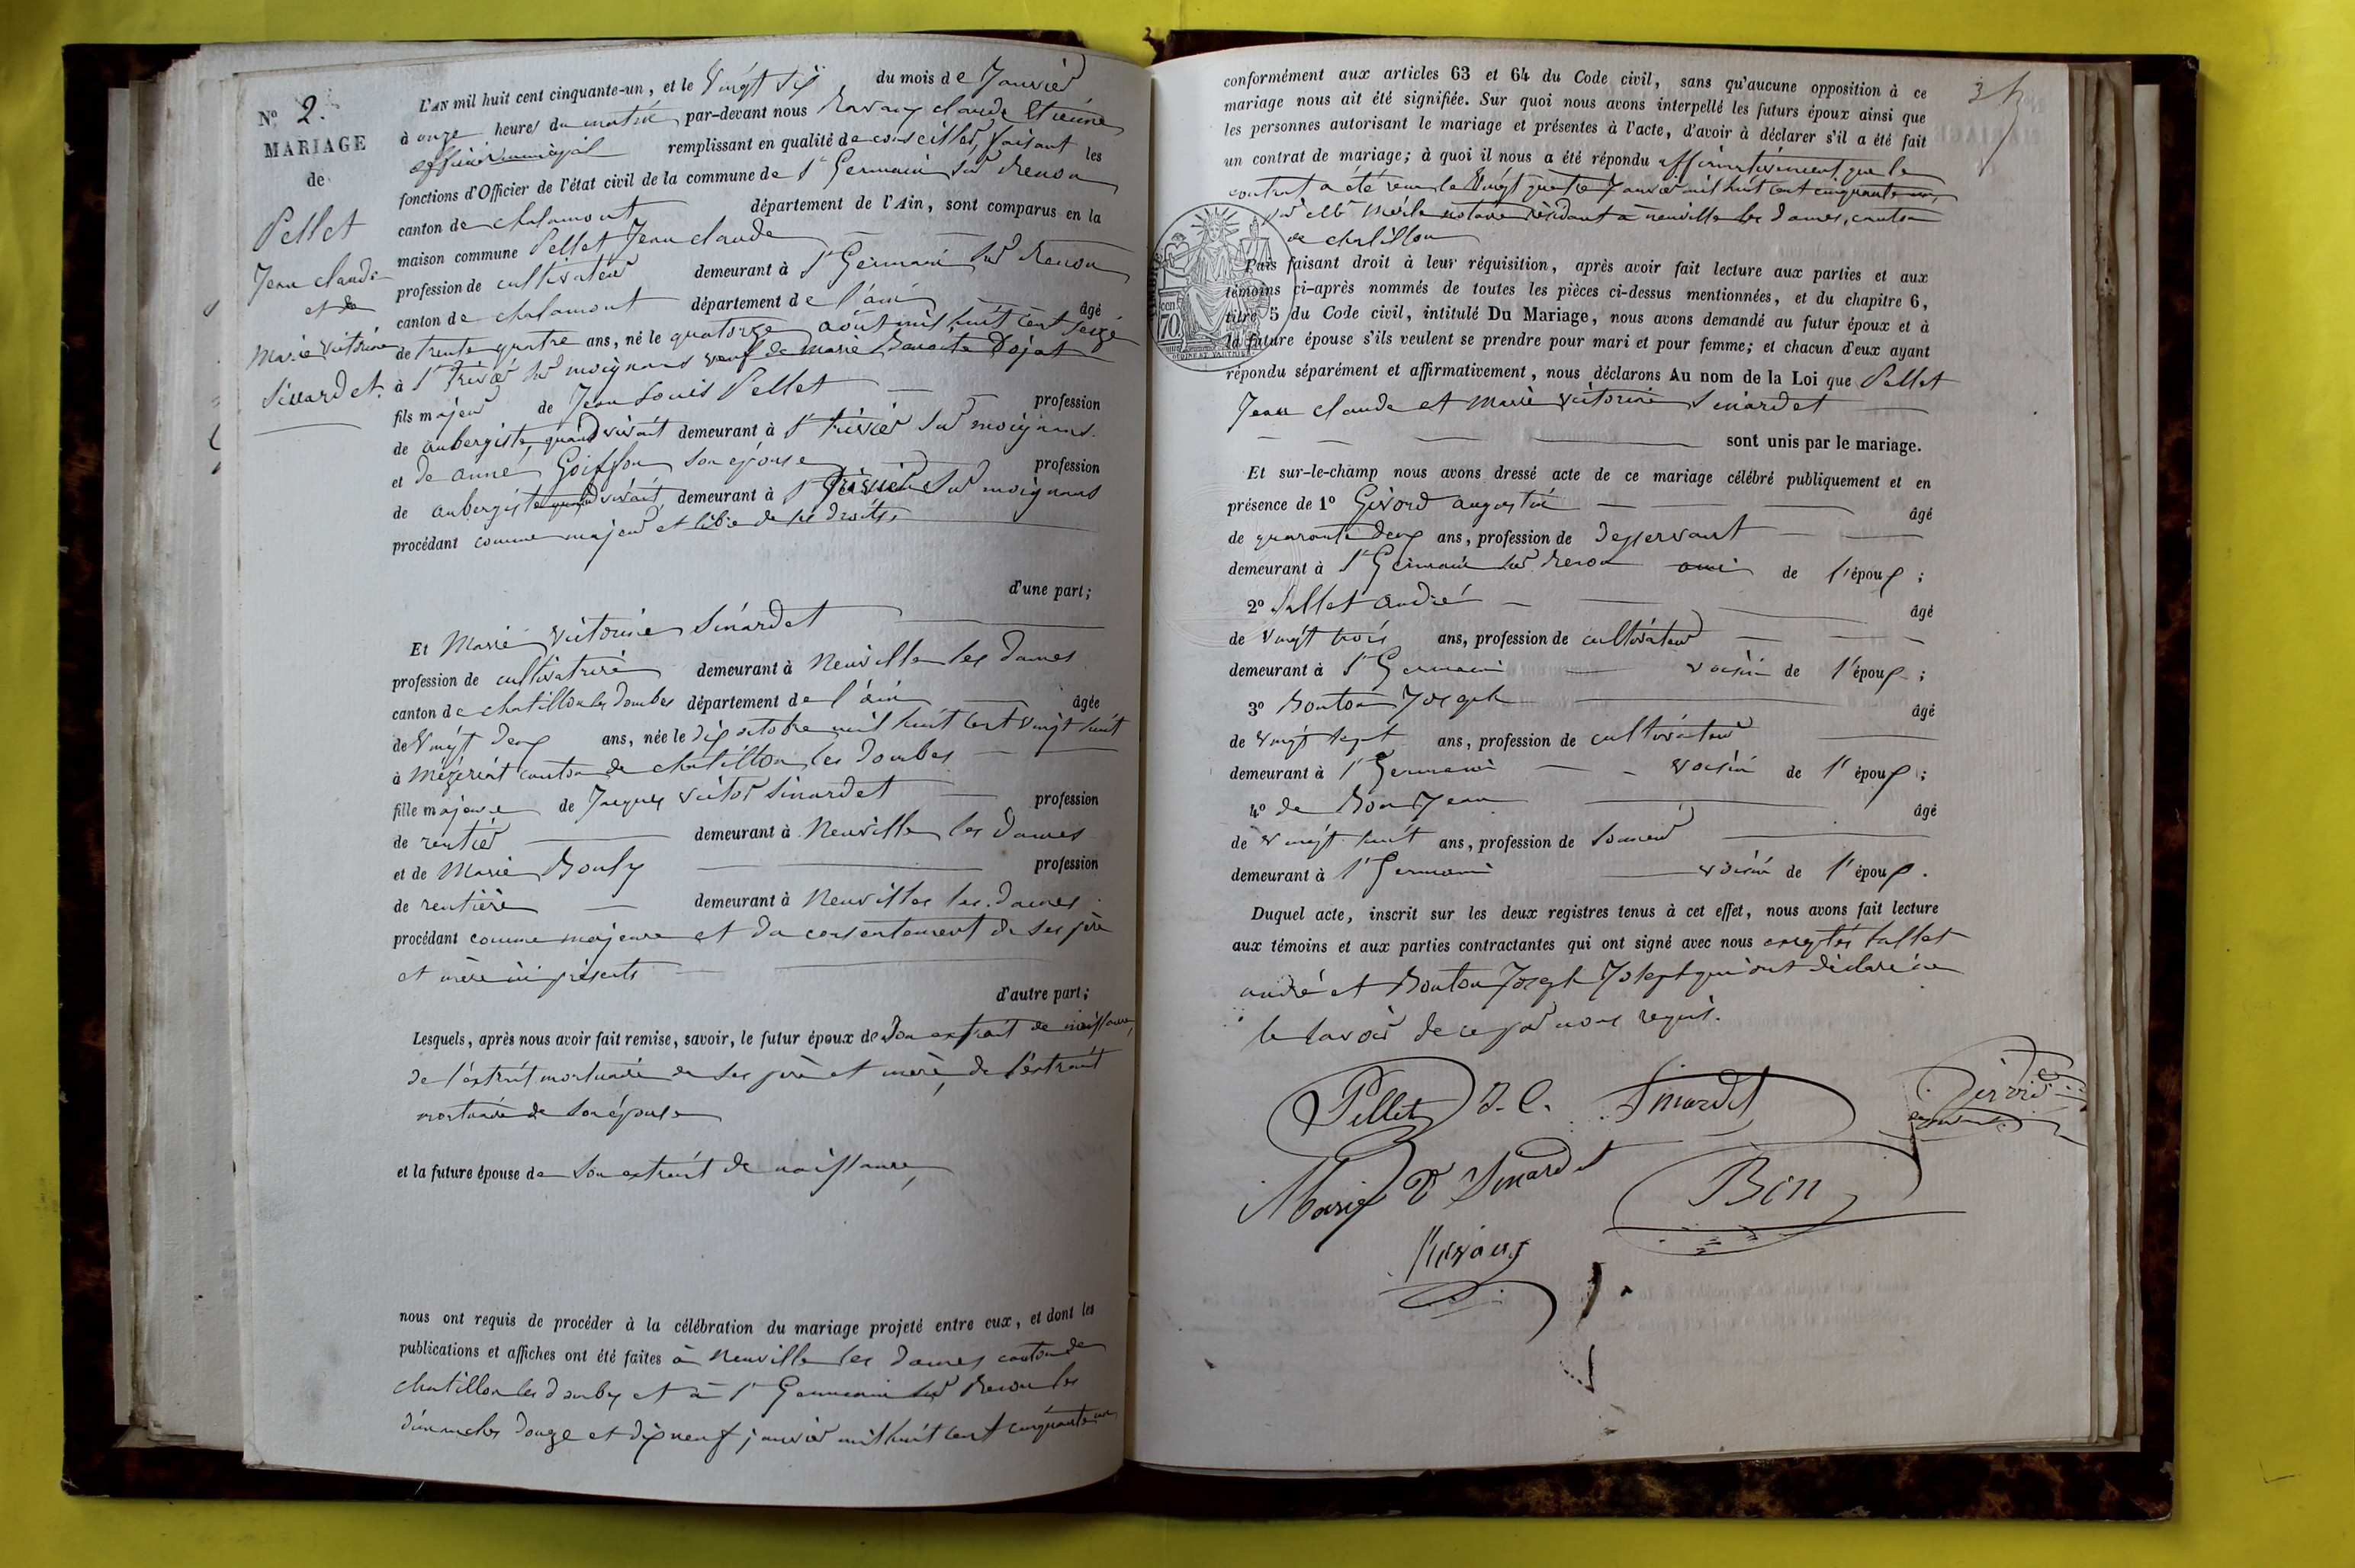 N° 2.
MARIAGE
de
Pellet
Jean claude
et de
Marie Victorine
Sinardet.
L'AN mil huit cent cinquante-un, et le Vingt Six du mois de Janvier
à onze heures du matin par-devant nous Ravaux claude Etienne
officier municipal remplissant en qualité de conseiller, faisant les
fonctions d'Officier de l'état civil de la commune de St Germain sur Renon
canton de chalamont département de l'Ain, sont comparus en la
maison commune Pellet Jean claude
profession de cultivateur demeurant à St Germain sur Renon
canton de chalamont département de l'ain âgé
de trente quatre ans, né le quatorze août mil huit cent seize
à St Trivier sur moignans veuf de Marie Benoite Dojat
fils majeur de Jean Louis Pellet profession
de aubergiste, quand vivait demeurant à St trivier sur moignans.
et de anne Goiffon son épouse profession
de aubergiste quand vivait, demeurant à St Trivier sur moignans
procédant comme majeur et libre de ses droits,
d'une part;
Et Marie Victorine Sinardet
profession de cultivatrice demeurant à Neuville les dames
canton de chatillon les Dombes département de l'ain âgée
de Vingt deux ans, née le dix octobre mil huit cent vingt huit
à Mézériat canton de chatillon les Dombes
fille majeure de Jacques Victor Sinardet profession
de rentier demeurant à Neuville les dames
et de Marie Bouly profession
de rentière demeurant à Neuville les dames
procédant comme majeure et du consentement de ses père
et mère ici présents
d'autre part;
Lesquels, après nous avoir fait remise, savoir, le futur époux de Son extrait de naissance,
de l'extrait mortuaire de ses père et mère, de l'extrait
mortuaire de son épouse
et la future épouse de Son extrait de naissance,
nous ont requis de procéder à la célébration du mariage projeté entre eux, et dont les
publications et affiches ont été faites à Neuville les dames canton de
chatillon les dombes et à St Germain sur Renon les
dimanches douze et dix neuf janvier mil huit cent cinquante un
conformément aux articles 63 et 64 du Code civil, sans qu'aucune opposition à ce
mariage nous ait été signifiée. Sur quoi nous avons interpellé les futurs époux ainsi que
les personnes autorisant le mariage et présentes à l'acte, d'avoir à déclarer s'il a été fait
un contrat de mariage; à quoi il nous a été répondu affirmativement que le
contrat a été reçu le Vingt quatre Janvier mil huit cent cinquante un,
par Me Merle notaire résidant à neuville les dames, canton
de chatillon
Puis faisant droit à leur réquisition, après avoir fait lecture aux parties et aux
témoins ci-après nommés de toutes les pièces ci-dessus mentionnées, et du chapitre 6,
titre 5 du Code civil, intitulé Du Mariage, nous avons demandé au futur époux et à
la future épouse s'ils veulent se prendre pour mari et pour femme; et chacun d'eux ayant
répondu séparément et affirmativement, nous déclarons Au nom de la Loi que Pellet
Jean claude et Marie Victorine Sinardet
sont unis par le mariage.
Et sur-le-champ nous avons dressé acte de ce mariage célébré publiquement et en
présence de 1° Girord augustin âgé
de quarante deux ans, profession de desservant
demeurant à St Germain sur Renon ami de l'époux;
2° Sallet andré âgé
de Vingt trois ans, profession de cultivateur
demeurant à St Germain voisin de l'époux;
3° Bouton Joseph âgé
de Vingt sept ans, profession de cultivateur
demeurant à St Germain voisin de l'époux;
4° de Bon Jean âgé
de Vingt huit ans, profession de
demeurant à St Germain voisin de l'époux.
Duquel acte, inscrit sur les deux registres tenus à cet effet, nous avons fait lecture
aux témoins et aux parties contractantes qui ont signé avec nous exceptés Sallet
andré et Bouton Joseph Joseph qui ont déclaré ne
le savoir de ce par nous requis.
Pellet J. C. Sinardet
Marie V Sinardet Bon
Ravaux
70